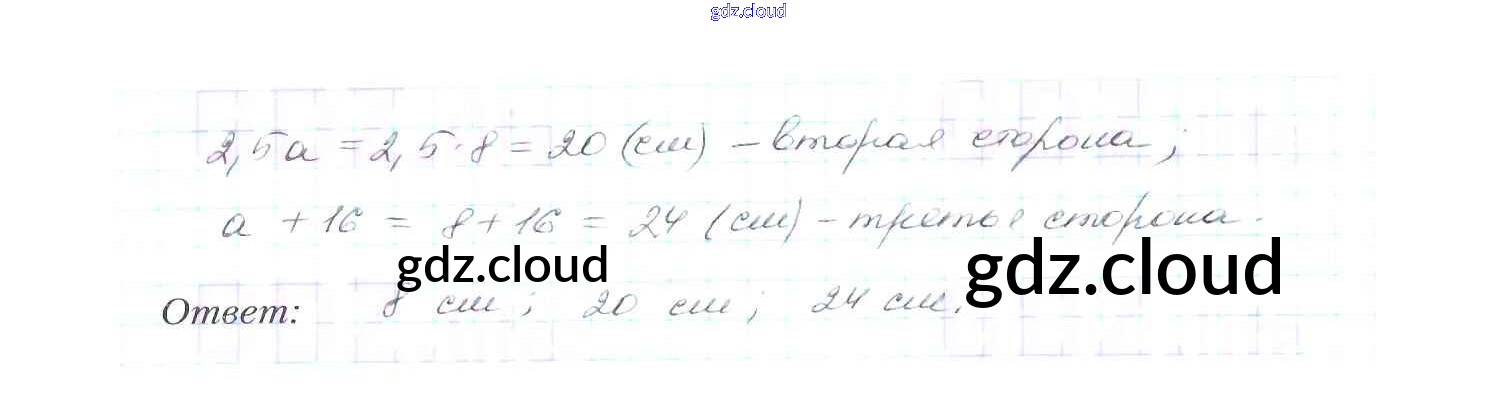 gdz.cloud
2,5a = 2,5·8 = 20 (см) – вторая сторона;
a + 16 = 8 + 16 = 24 (см) – третья сторона.
gdz.cloud gdz.cloud
Ответ: 8 см; 20 см; 24 см.